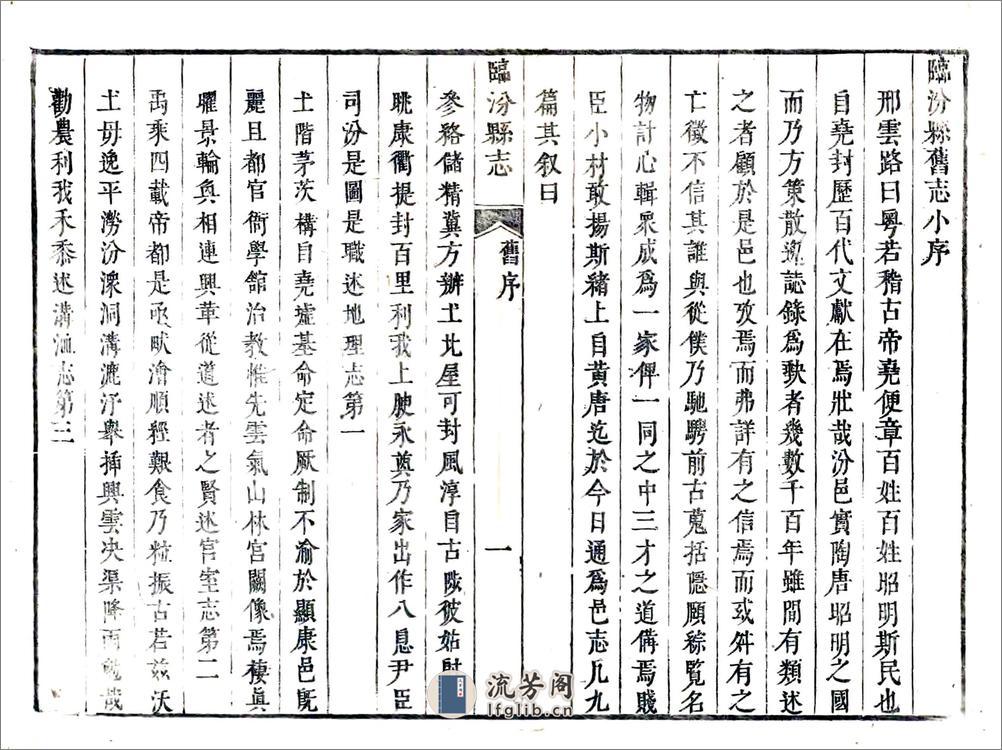 臨汾縣舊志小序
邢雲路曰粵若稽古帝堯便章百姓百姓昭明斯民也
自堯封歷百代文獻在焉壯哉汾邑實陶唐昭明之國
而乃方策散逸誌錄爲缺者幾數千百年雖間有類述
之者顧於是邑也攷焉而弗詳有之信焉而或舛有之
亡徵不信其誰與從僕乃馳騁前古蒐括隱頤綜覧名
物計心輯衆成爲一家俾一同之中三才之道備焉賤
臣小村敢揚斯緒上自黃唐迄於今日通爲邑志凡九
篇其叙曰
臨汾縣志
舊序
一
參絡儲精冀方辦土比屋可封風淳自古陟彼姑射
眺康衢提封百里利我上腴永奠乃家出作入息尹臣
司汾是圖是職述地理志第一
土階茅茨構自堯墟基命定命厥制不渝於顯康邑旣
麗且都官衙學館治教惟先雲氣山林宮闕像焉棲眞
曜景輪奐相連興革從道述者之賢述宮室志第二
禹乘四載帝都是亟畎澮順經艱食乃粒振古若茲沃
土毋逸平澇汾潀洞溝漉汙舉揷興雲决渠降雨勉哉
勸農利我禾黍述溝洫志第三
流芳阁
lfglib.cn